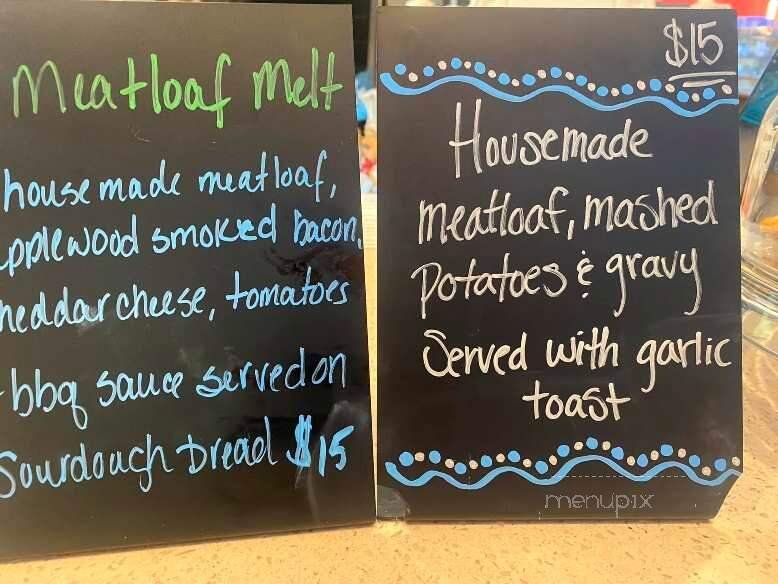 Meatloaf Melt
house made meatloaf,
applewood smoked bacon,
cheddar cheese, tomatoes
bbq sauce served on
Sourdough bread $15
$15
Housemade
meatloaf, mashed
potatoes & gravy
Served with garlic
toast
menupix